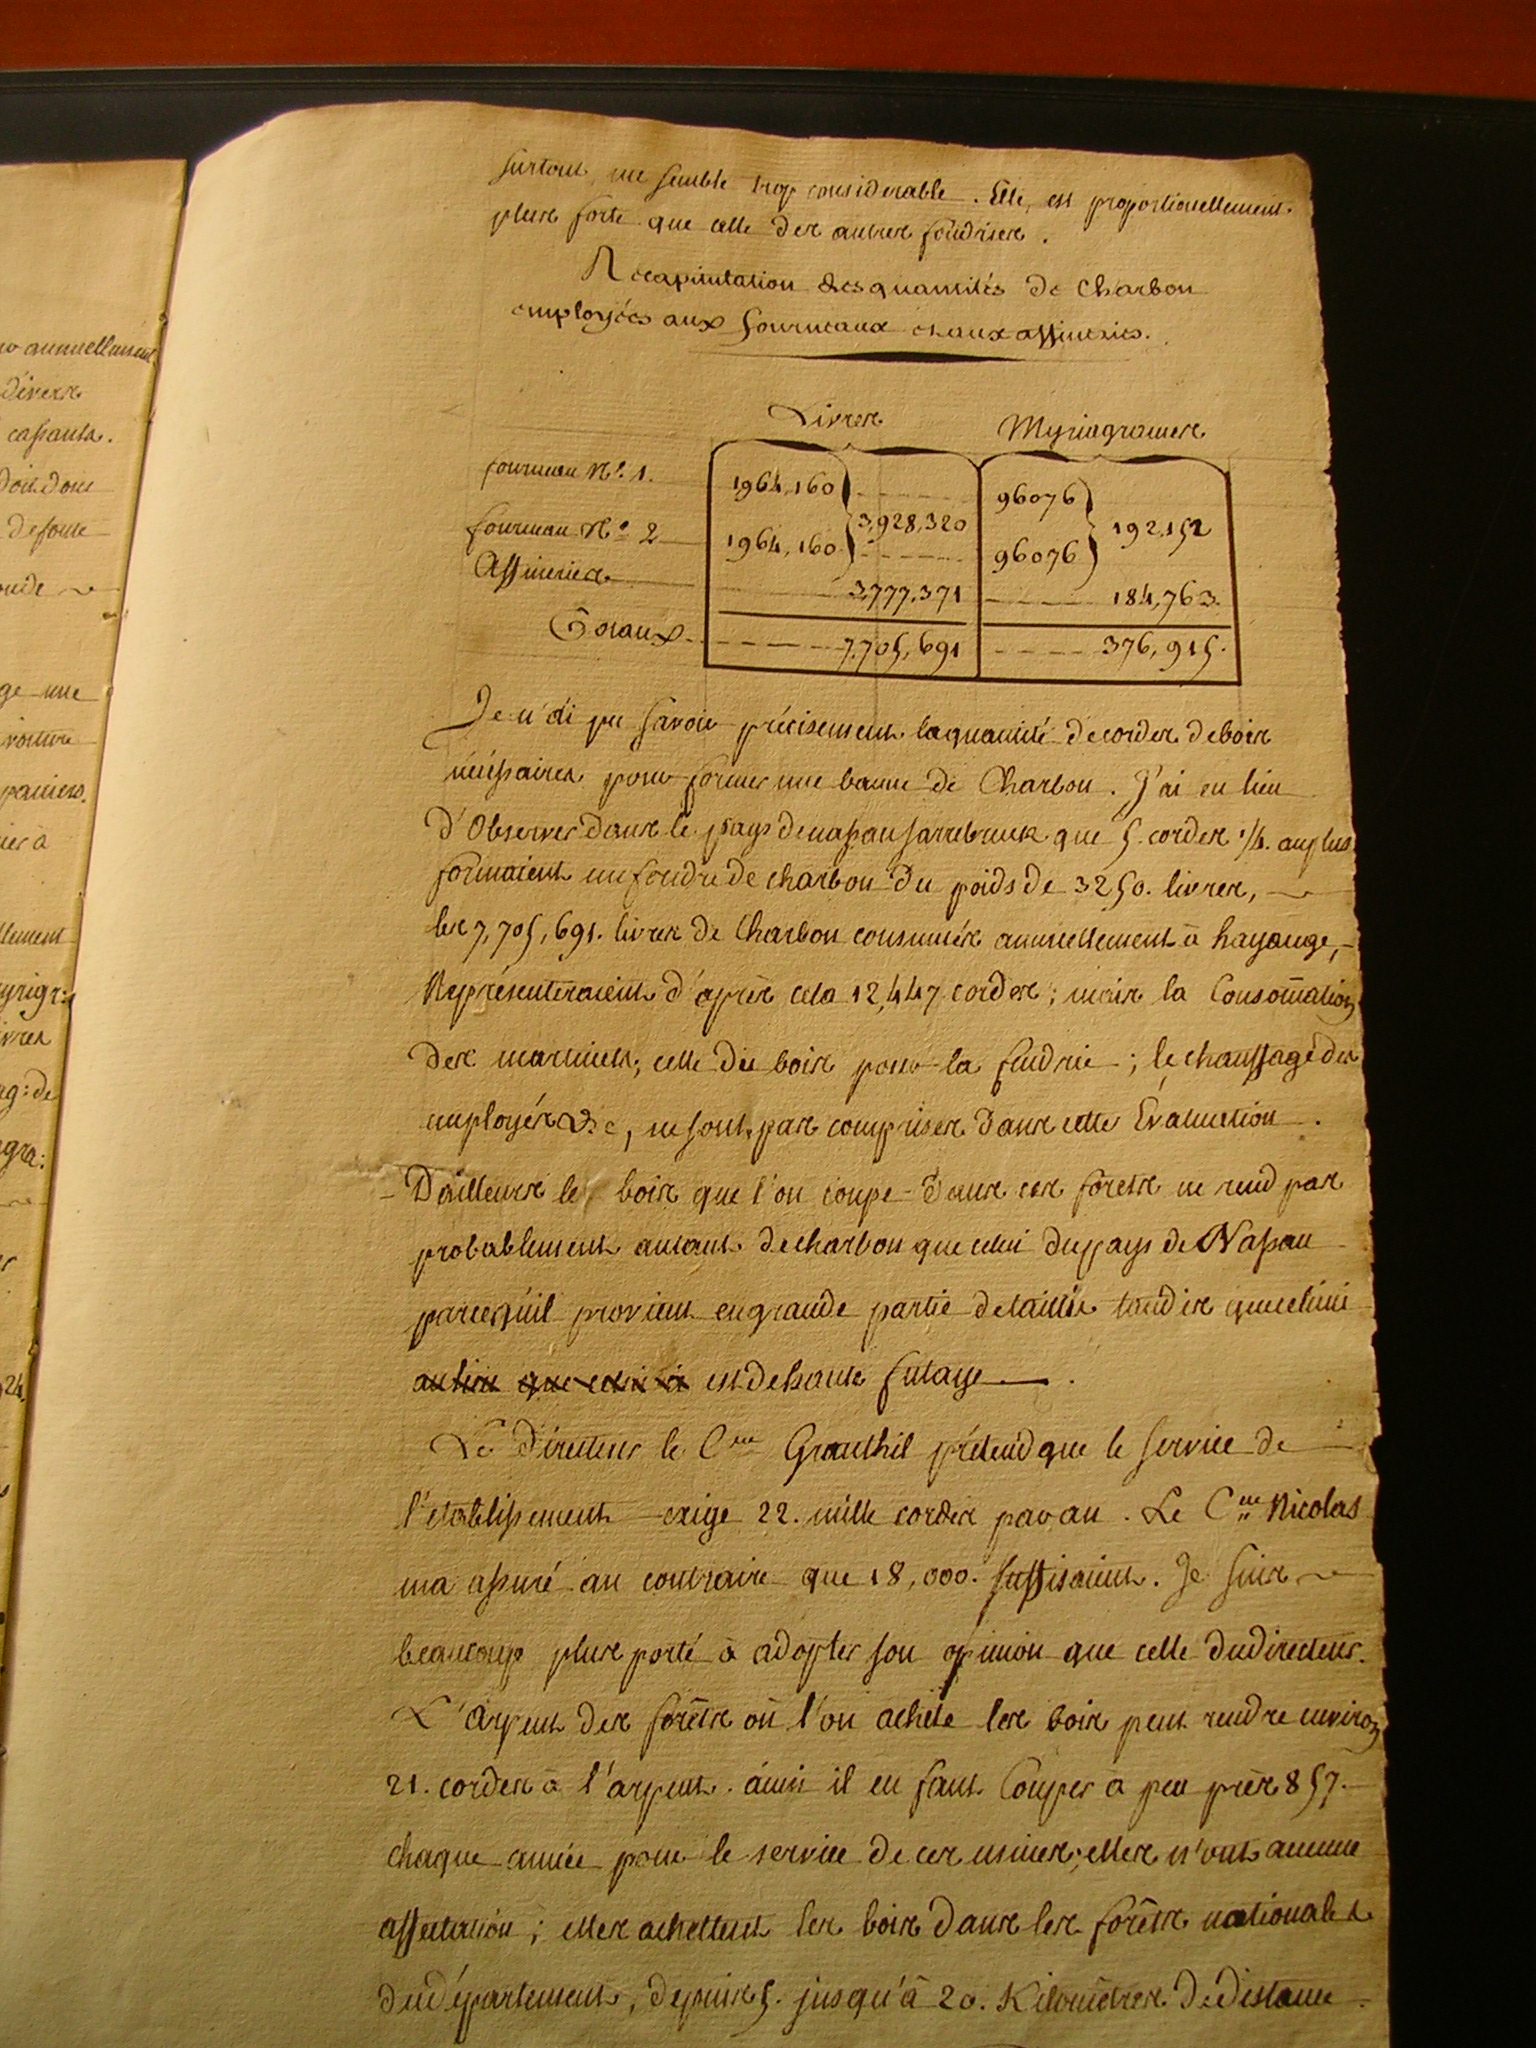 no annuellement
divers
cassants.
doit donc
de fonte
onde
ge une
voiture
paniers.
ier à
llement
myrigr:
ivres
ag: de
agra:
24.
surtout, me semble trop considerable. Elle, est proportionellement
plus forte que celle des autres fondries.
Récapitulation des quantités de Charbon
employées aux fourneaux et aux affineries.
Livres Myriagrames
fourneau N.o 1. 1964,160 96076
3,928,320 192,152
fourneau N.o 2 1964,160 96076
Affineries 3,777,371 184,763.
Totaux 7,705,691 376,915.
Je n'ai pu savoir précisement la quantité de cordes de bois
nécessaires pour former une banne de Charbon. J'ai eu lieu
d'Observer dans le pays de nassau sarrebruck que 5. cordes 1/4. au plus
formaient un foudre de charbon du poids de 3250. livres,
les 7,705,691. livres de Charbon consumés annuellement à hayange,
Représenteraient d'après cela 12,447 cordes; mais la Consomation
des martinets; celle du bois pour la fendrie; le chauffage des
employés &c, ne sont pas comprises dans cette Evaluation.
D'ailleurs le bois que l'on coupe dans ces forêts ne rend pas
probablement autant de charbon que celui du pays de Nassau
parcequ'il provient en grande partie de taillis tandis que celui
au lieu que celui ci est de haute futaye.
Le Directeur le C.en Granthil prétend que le service de
l'etablissement exige 22. mille cordes par an. Le C.en Nicolas
m'a assuré au contraire que 18,000. suffisaient. Je suis
beaucoup plus porté à adopter son opinion que celle du directeur.
L'Arpent des forêts où l'on achète les bois peut rendre environ
21. cordes à l'arpent. ainsi il en faut Couper à peu près 857.
chaque année pour le service de ces usines; elles n'ont aucune
affectation; elles achettent les bois dans les forêts nationales
du département, depuis 5. jusqu'à 20. Kilomètres de distance.